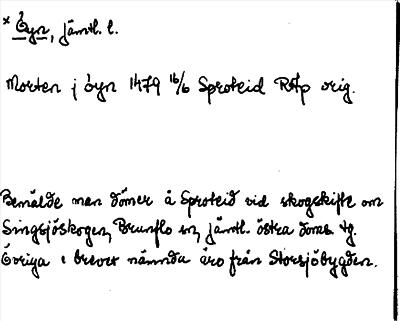 * Óyn, jämtl. l.
Morten j óyn 1479 16/6 Sproteid RAp orig.
Bemälde man dömer å Sproteid vid skogskifte om
Singsjöskogen, Brunflo sn, jämtl. östra doms. tg.
Övriga i brevet nämnda äro från Storsjöbygden.